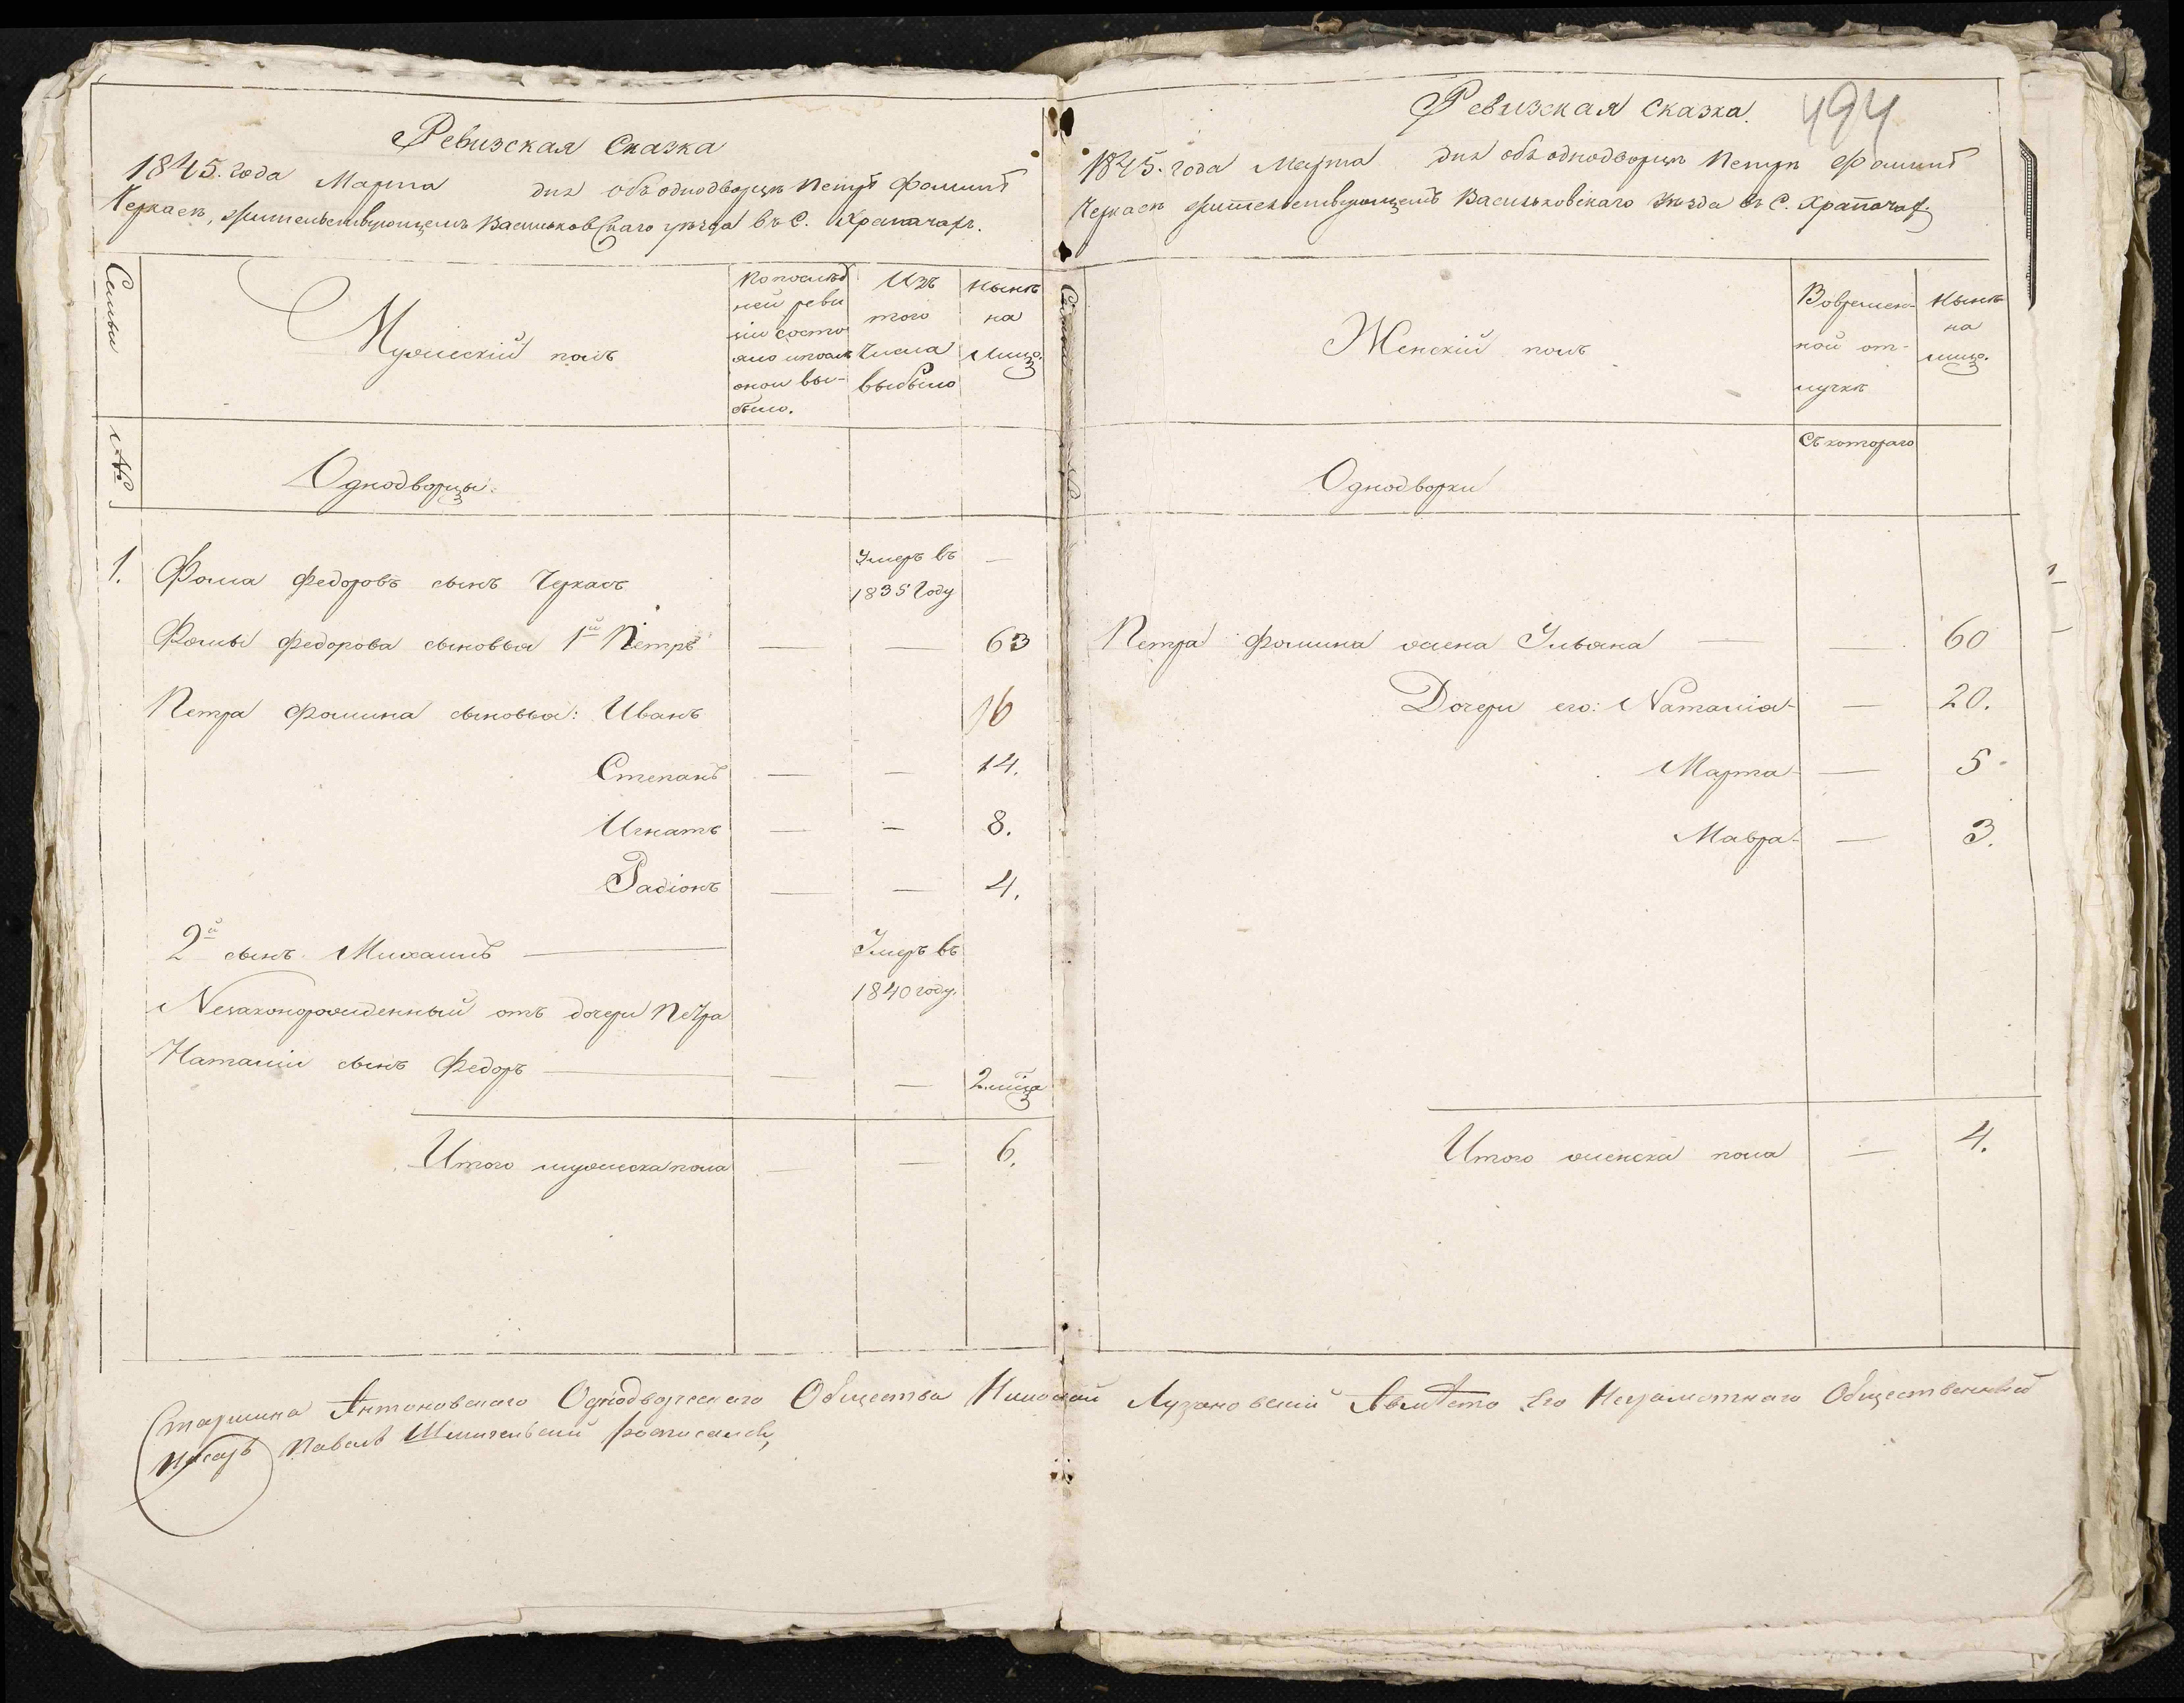 Ревизская Сказка
1845. года Марта дня объ однодворце Петре Фомине
Черкасе, жительствующемъ Васильковскаго уезда въ С. Храпачахъ.
Семьи
Мужескій полъ
По послед
ней реви
зіи состо
яло и после
оной вы-
было.
Изъ
того
числа
выбыло
Ныне
на
лицо.
№
Однодворцы.
1. Фома Федоровъ сынъ Черкасъ Умеръ въ —
1835 году
Фомы Федорова сыновья 1й Петръ — — 63
Петра Фомина сыновья: Иванъ 16
Степанъ — — 14.
Игнатъ — — 8.
Радіонъ — — 4.
2й сынъ Михаилъ — Умеръ въ
1840 году.
Незаконорожденный отъ дочери Петра
Наталіи сынъ Федоръ — — — 2. месяца
Итого мужеска пола — — 6.
494
Ревизская Сказка.
1845. года Марта дня объ однодворце Петре Фомине
Черкасе жительствующемъ Васильковскаго уезда въ С. Храпачах
Женскій полъ
Вовремен-
ной от-
лучке
Ныне
на
лицо.
Съ котораго
Однодворки
Петра Фомина жена Ульяна — — 60
Дочери его: Наталія — — 20.
Марта — — 5
Мавра — — 3.
Итого женска пола — 4.
Старшина Антоновскаго Однодворческаго Общества Николай Лузановский а вместо Его Неграмотнаго Общественный
Писарь Павелъ росписался